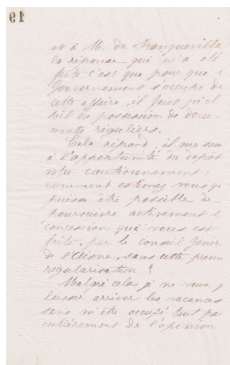 19
et à M. de Franqueville
la réponse qui m'a été
faite c'est que pour que
Gouvernement s'occupe de
cette affaire, il faut qu'il
soit en possession de docu
ments réguliers.
Cela répond, il me sem
à l'opportunité du dépôt
votre cautionnement.
comment estimez vous qu
puisse être possible de
poursuivre activement
concession qui vous est
faite, par le Conseil Génér
de l'Aisne, sans cette
régularisation ?
Malgré cela je ne veux p
laisser arriver les vacances
sans m'être occupé tout par
ticulièrement de l'opinion